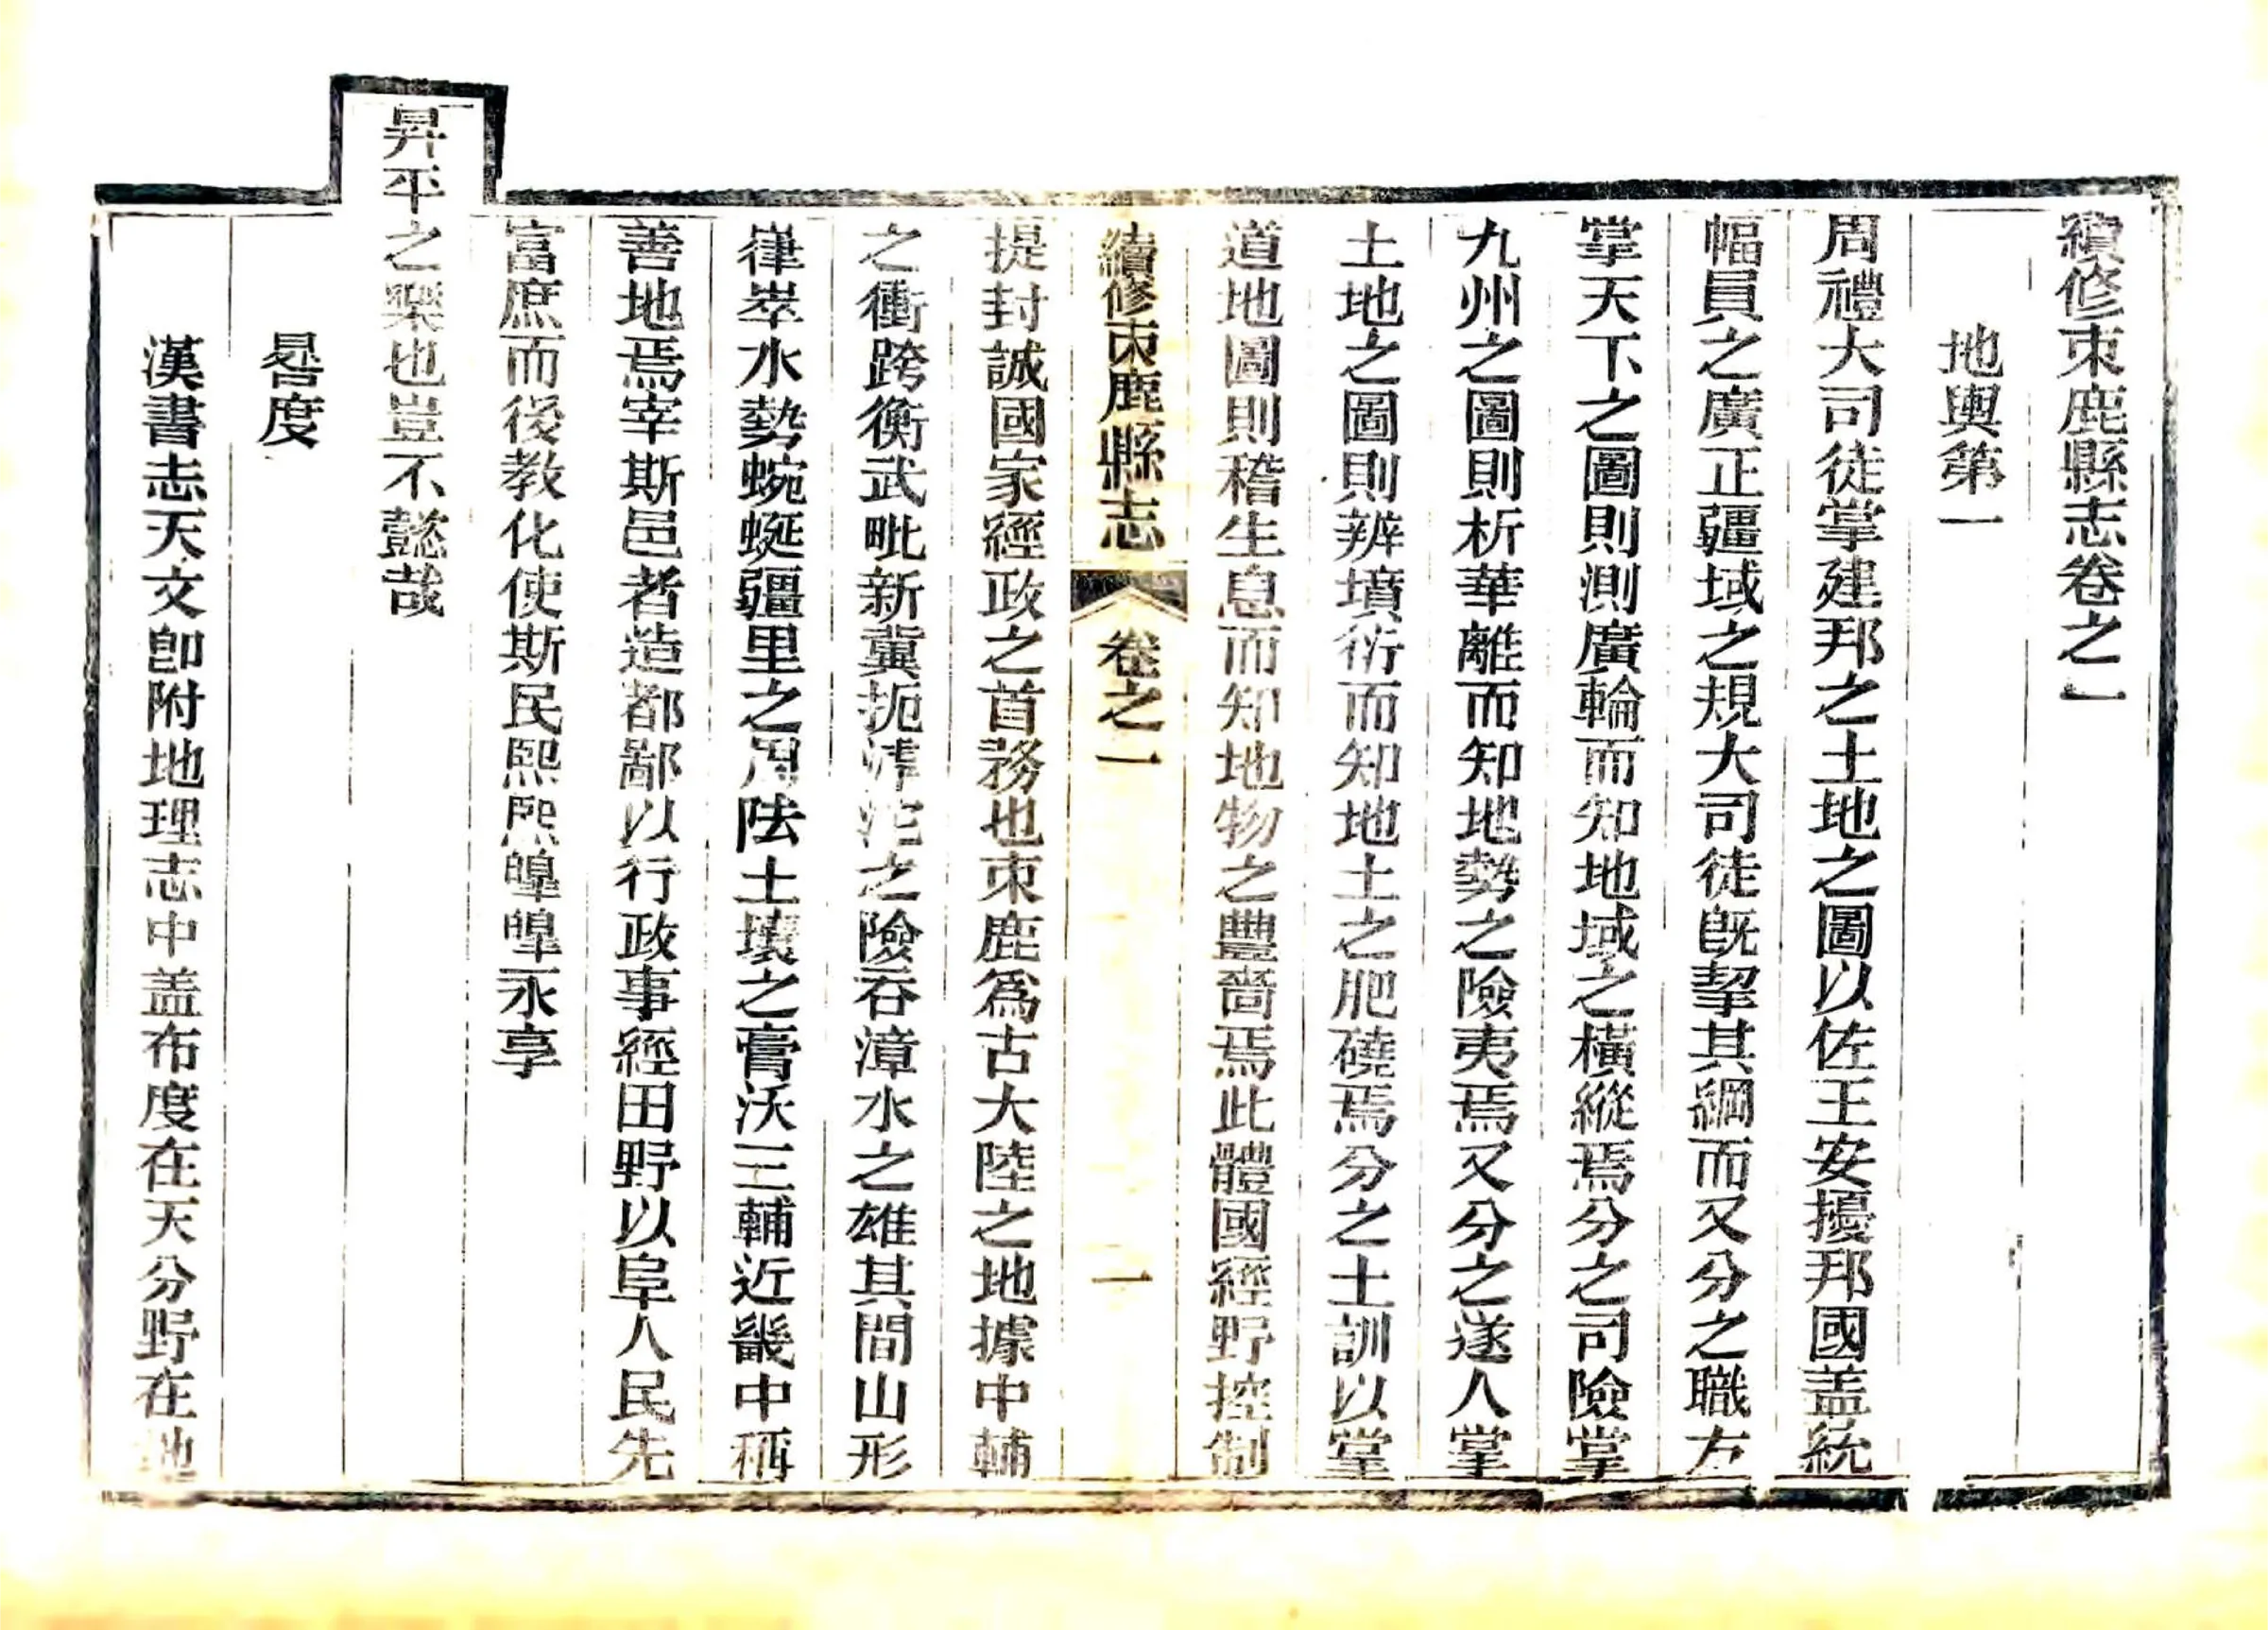 續修束鹿縣志卷之一
地輿第一
周禮大司徒掌建邦之土地之圖以佐王安擾邦國盖統
幅員之廣正疆域之規大司徒旣挈其綱而又分之職方
掌天下之圖則測廣輪而知地域之橫縱焉分之司險掌
九州之圖則析華離而知地勢之險夷焉又分之遂人掌
土地之圖則辨墳衍而知地土之肥磽焉分之土訓以掌
道地圖則稽生息而知地物之豐嗇焉此體國經野控制
續修束鹿縣志 卷之一 一
提封誠國家經政之首務也束鹿爲古大陸之地據中輔
之衝跨衡武毗新冀扼滹沱之險吞漳水之雄其間山形
嵂崒水勢蜿蜒疆里之周阹土壤之膏沃三輔近畿中稱
善地焉宰斯邑者造都鄙以行政事經田野以阜人民先
富庶而後教化使斯民熙熙皞皞永享
昇平之樂也豈不懿哉
晷度
漢書志天文卽附地理志中盖布度在天分野在地